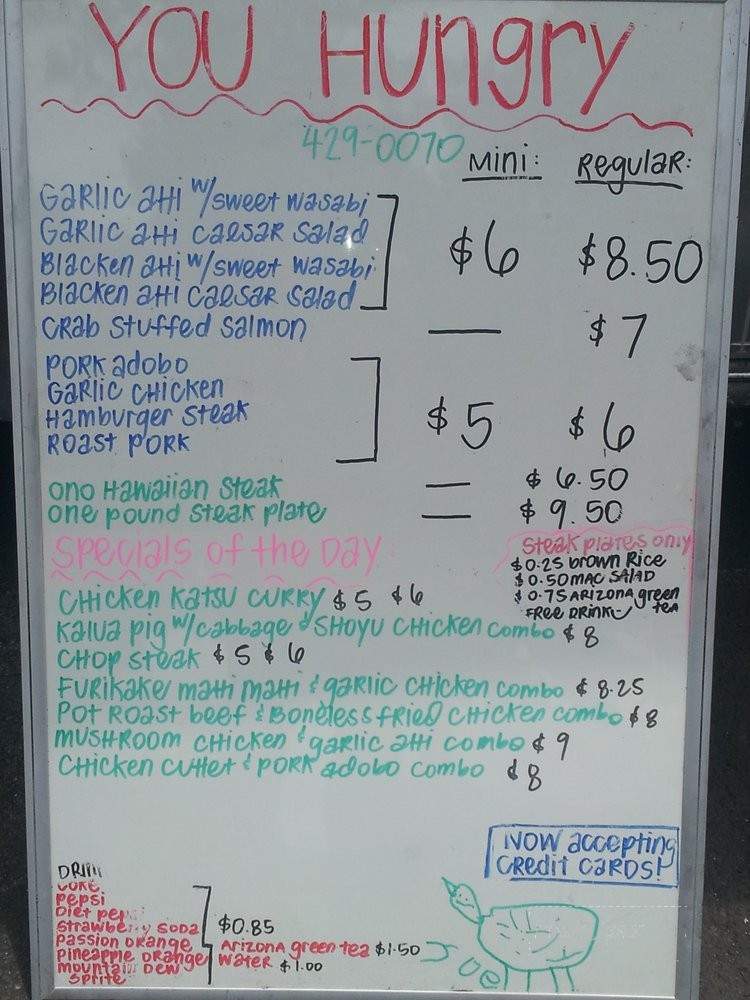 YOU Hungry
429-0070
Mini: Regular:
Garlic ahi w/sweet wasabi
Garlic ahi caesar salad
Blacken ahi w/sweet wasabi
Blacken ahi caesar salad
$6 $8.50
Crab stuffed salmon — $7
Pork adobo
Garlic chicken
Hamburger steak
Roast pork
$5 $6
Ono Hawaiian steak — $6.50
One pound steak plate — $9.50
Specials of the Day
Steak plates only
$0.25 brown Rice
$0.50 mac salad
$0.75 Arizona green tea
Free drink
Chicken katsu curry $5 $6
Kalua pig w/cabbage & shoyu chicken combo $8
Chop steak $5 $6
Furikake mahi mahi & garlic chicken combo $8.25
Pot roast beef & Boneless fried chicken combo $8
Mushroom chicken & garlic ahi combo $9
Chicken cutlet & pork adobo combo $8
NOW accepting
credit cards!
Coke
Pepsi
Diet
Strawberry soda
Passion orange
Pineapple orange
Mountain Dew
Sprite
$0.85
Arizona green tea $1.50
Water $1.00
Joe